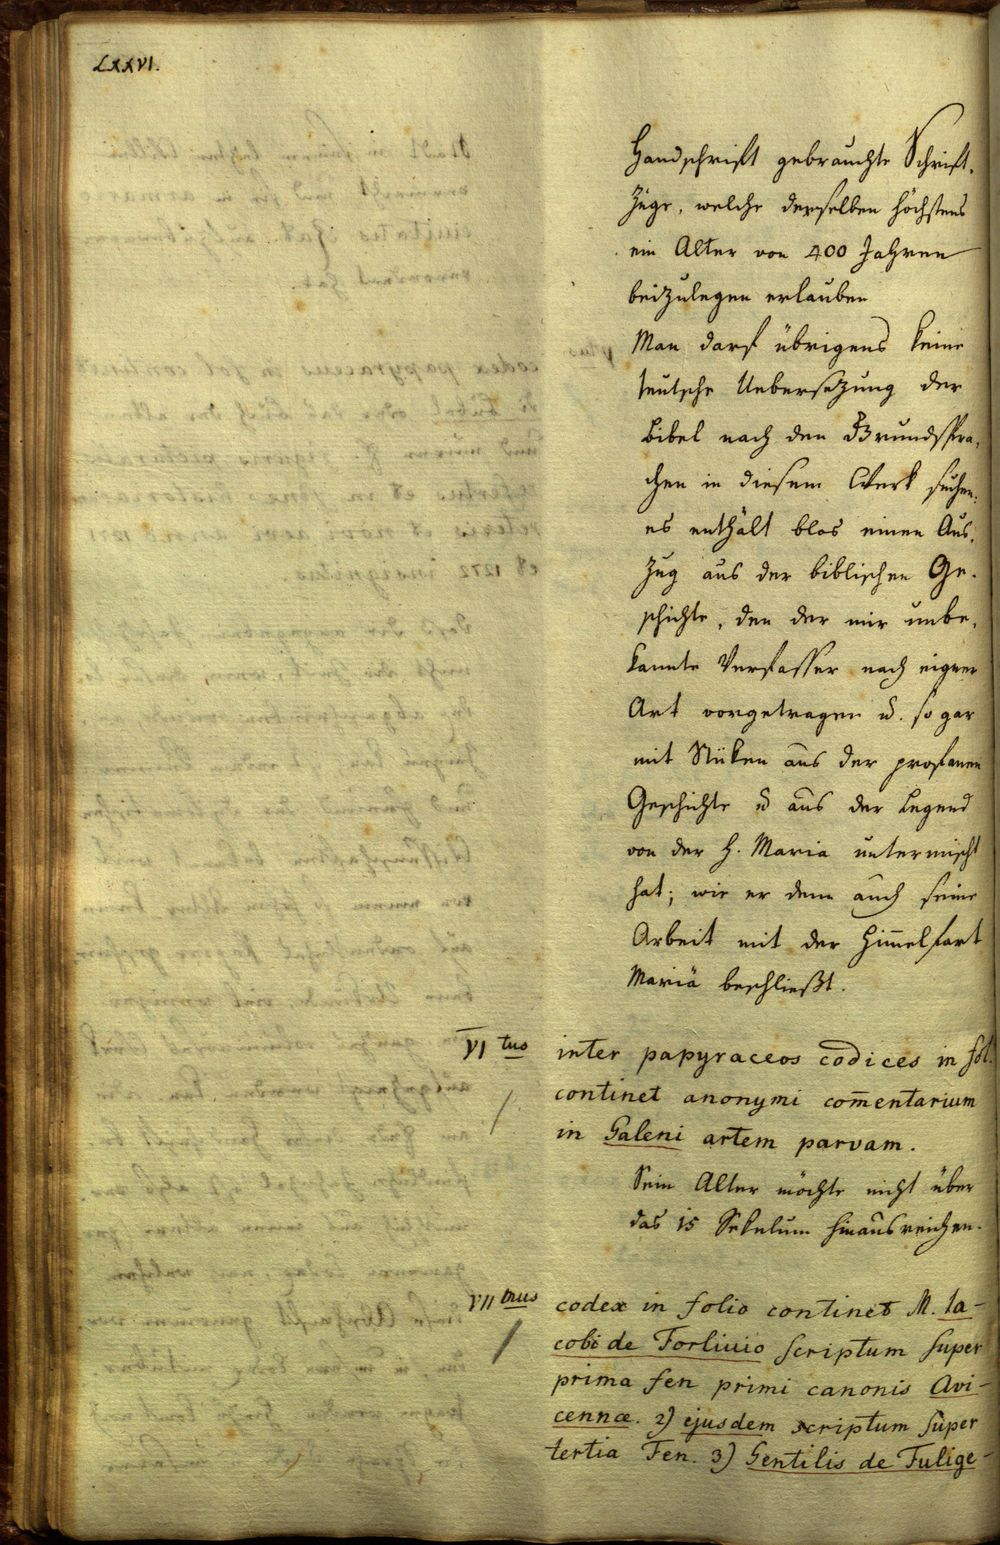 LXXVI.
Handschrift gebrauchte Schrift-
züge, welche derselben höchstens
ein Alter von 400 Jahren
beizulegen erlauben
Man darf übrigens keine
teutsche Uebersetzung der
Bibel nach den Grundspra-
chen in diesem Werk suchen:
es enthält blos einen Aus-
zug aus der biblischen Ge-
schichte, den der mir unbe-
kannte Verfasser nach eigner
Art vorgetragen u. so gar
mit Stüken aus der profanen
Geschichte u aus der Legend
von der H. Maria untermischt
hat; wie er denn auch seine
Arbeit mit der Him̅elfart
Mariä beschließt.
VI tus inter papyraceos codices in fol.
continet anonymi com̅entarium
in Galeni artem parvam.
Sein Alter möchte nicht über
das 15 Sekulum hinausreichen.
VII mus codex in folio continet M. Ia-
cobi de Forliuio scriptum super
prima fen primi canonis Avi-
cennæ. 2) ejusdem scriptum super
tertia Fen. 3) Gentilis de Fulige-